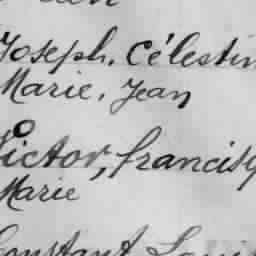 Joseph, Célestin
Marie, Jean
Victor, francisq
Marie
Constant Louis